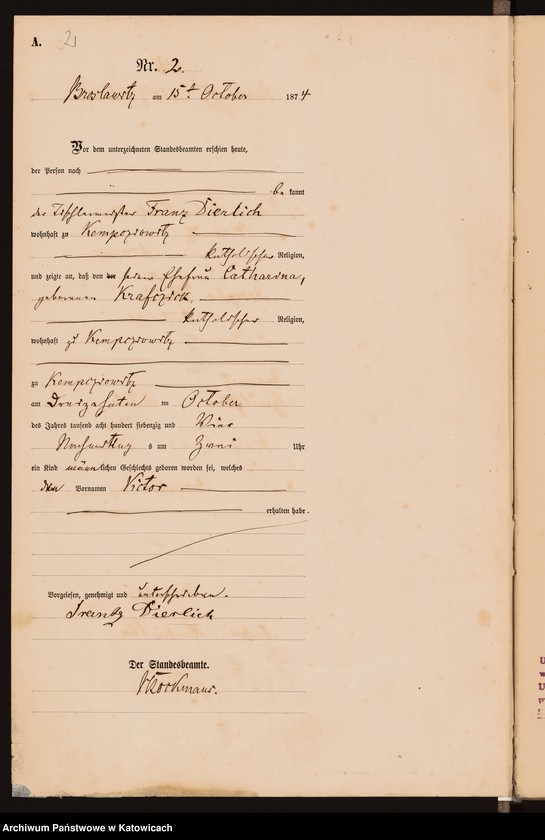 A. 2
Nr. 2.
Broslawitz am 15t October 1874
Vor dem unterzeichneten Standesbeamten erschien heute,
der Person nach
be kannt
der Tischlermeister Franz Dierlich
wohnhaft zu Kempczowitz
katholischer Religion,
und zeigte an, daß von der seiner Ehefrau Catharina,
geborenen Krafczick,
katholischer Religion,
wohnhaft zu Kempczowitz
zu Kempczowitz
am Dreizehnten ten October
des Jahres tausend acht hundert siebenzig und Vier
Nachmittag s um Zwei Uhr
ein Kind männlichen Geschlechts geboren worden sei, welches
den Vornamen Victor
erhalten habe.
Vorgelesen, genehmigt und unterschrieben.
Frantz Dierlich
Der Standesbeamte.
Archiwum Państwowe w Katowicach